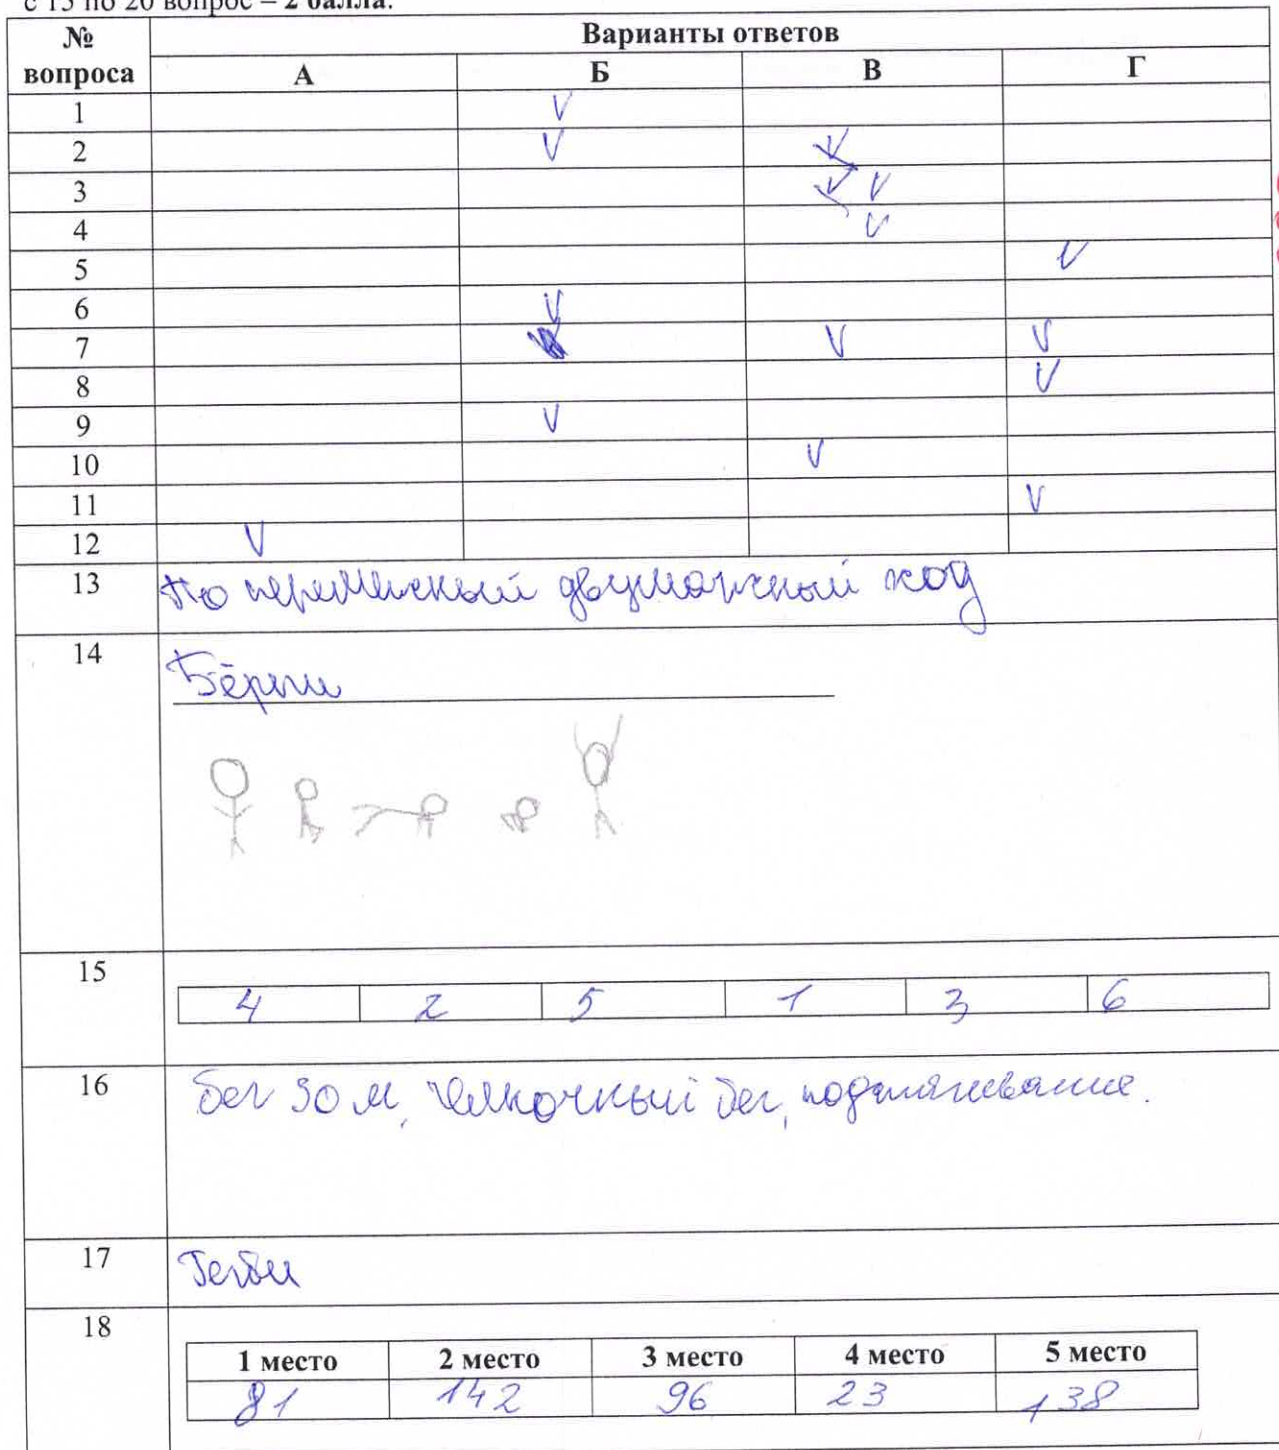 с 15 по 20 вопрос – 2 балла.
№ вопроса Варианты ответов
А Б В Г
1 V
2 V V
3 V V
4 V
5 V
6 V
7 V V
8 V
9 V
10 V
11 V
12 V
13 попеременный двушажный ход
14 Бёрпи
15 4 2 5 1 3 6
16 бег 30 м, челночный бег, подтягивание.
17 Регби
18
1 место 2 место 3 место 4 место 5 место
81 142 96 23 138